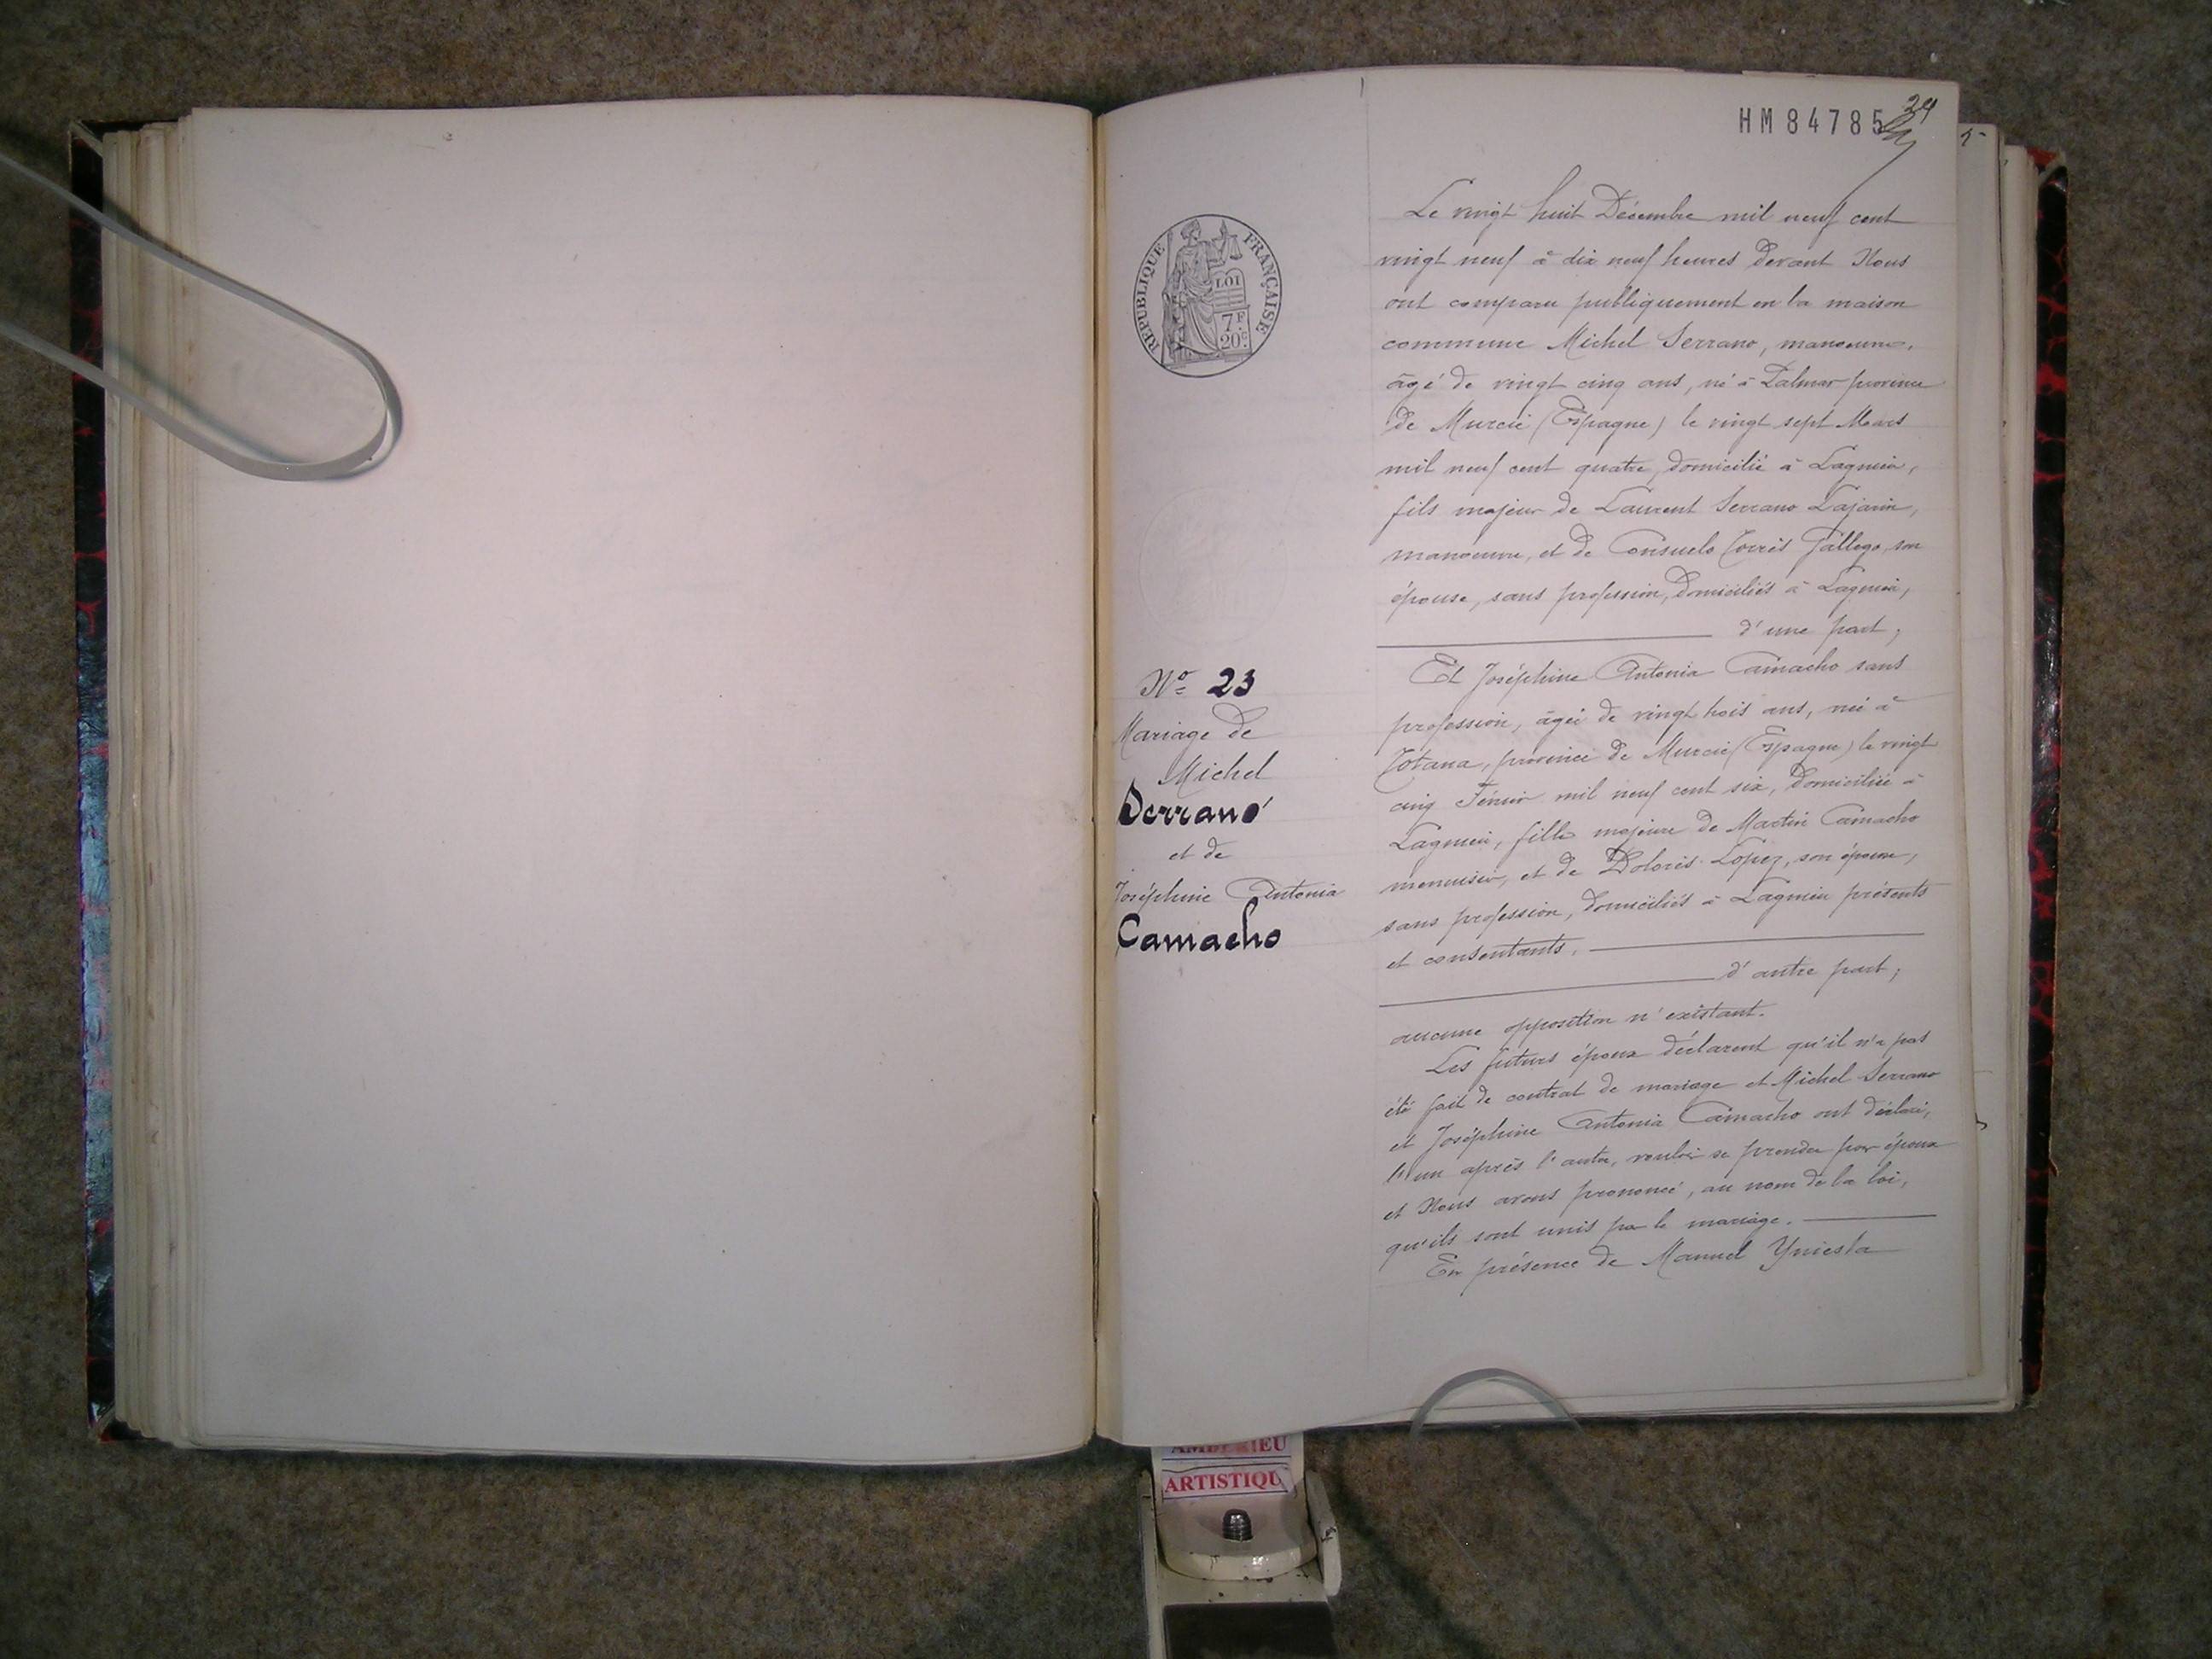 HM84785
24
5
RÉPUBLIQUE FRANÇAISE
LOI
7F
20c
Le vingt huit Décembre mil neuf cent
vingt neuf à dix neuf heures devant Nous
ont comparu publiquement en la maison
commune Michel Serrano, manoeuvre,
âgé de vingt cinq ans, né à Palmar province
de Murcie (Espagne) le vingt sept Mars
mil neuf cent quatre, domicilié à Lagnieu,
fils majeur de Laurent Serrano Lajarin,
manoeuvre, et de Consuelo Torrès Gallego, son
épouse, sans profession, domiciliés à Lagnieu,
d'une part;
Et Joséphine Antonia Camacho sans
profession, âgée de vingt trois ans, née à
Totana, province de Murcie (Espagne) le vingt
cinq Février mil neuf cent six, domiciliée à
Lagnieu, fille majeure de Martin Camacho
menuisier, et de Dolorès Lopez, son épouse,
sans profession, domiciliés à Lagnieu présents
et consentants,
d'autre part;
aucune opposition n'existant.
Les futurs époux déclarent qu'il n'a pas
été fait de contrat de mariage et Michel Serrano
et Joséphine Antonia Camacho ont déclaré,
l'un après l'autre, vouloir se prendre pour époux
et Nous avons prononcé, au nom de la loi,
qu'ils sont unis par le mariage.
En présence de Manuel Yniesta
No 23
Mariage de
Michel
Serrano
et de
Joséphine Antonia
Camacho
ARTISTIQU